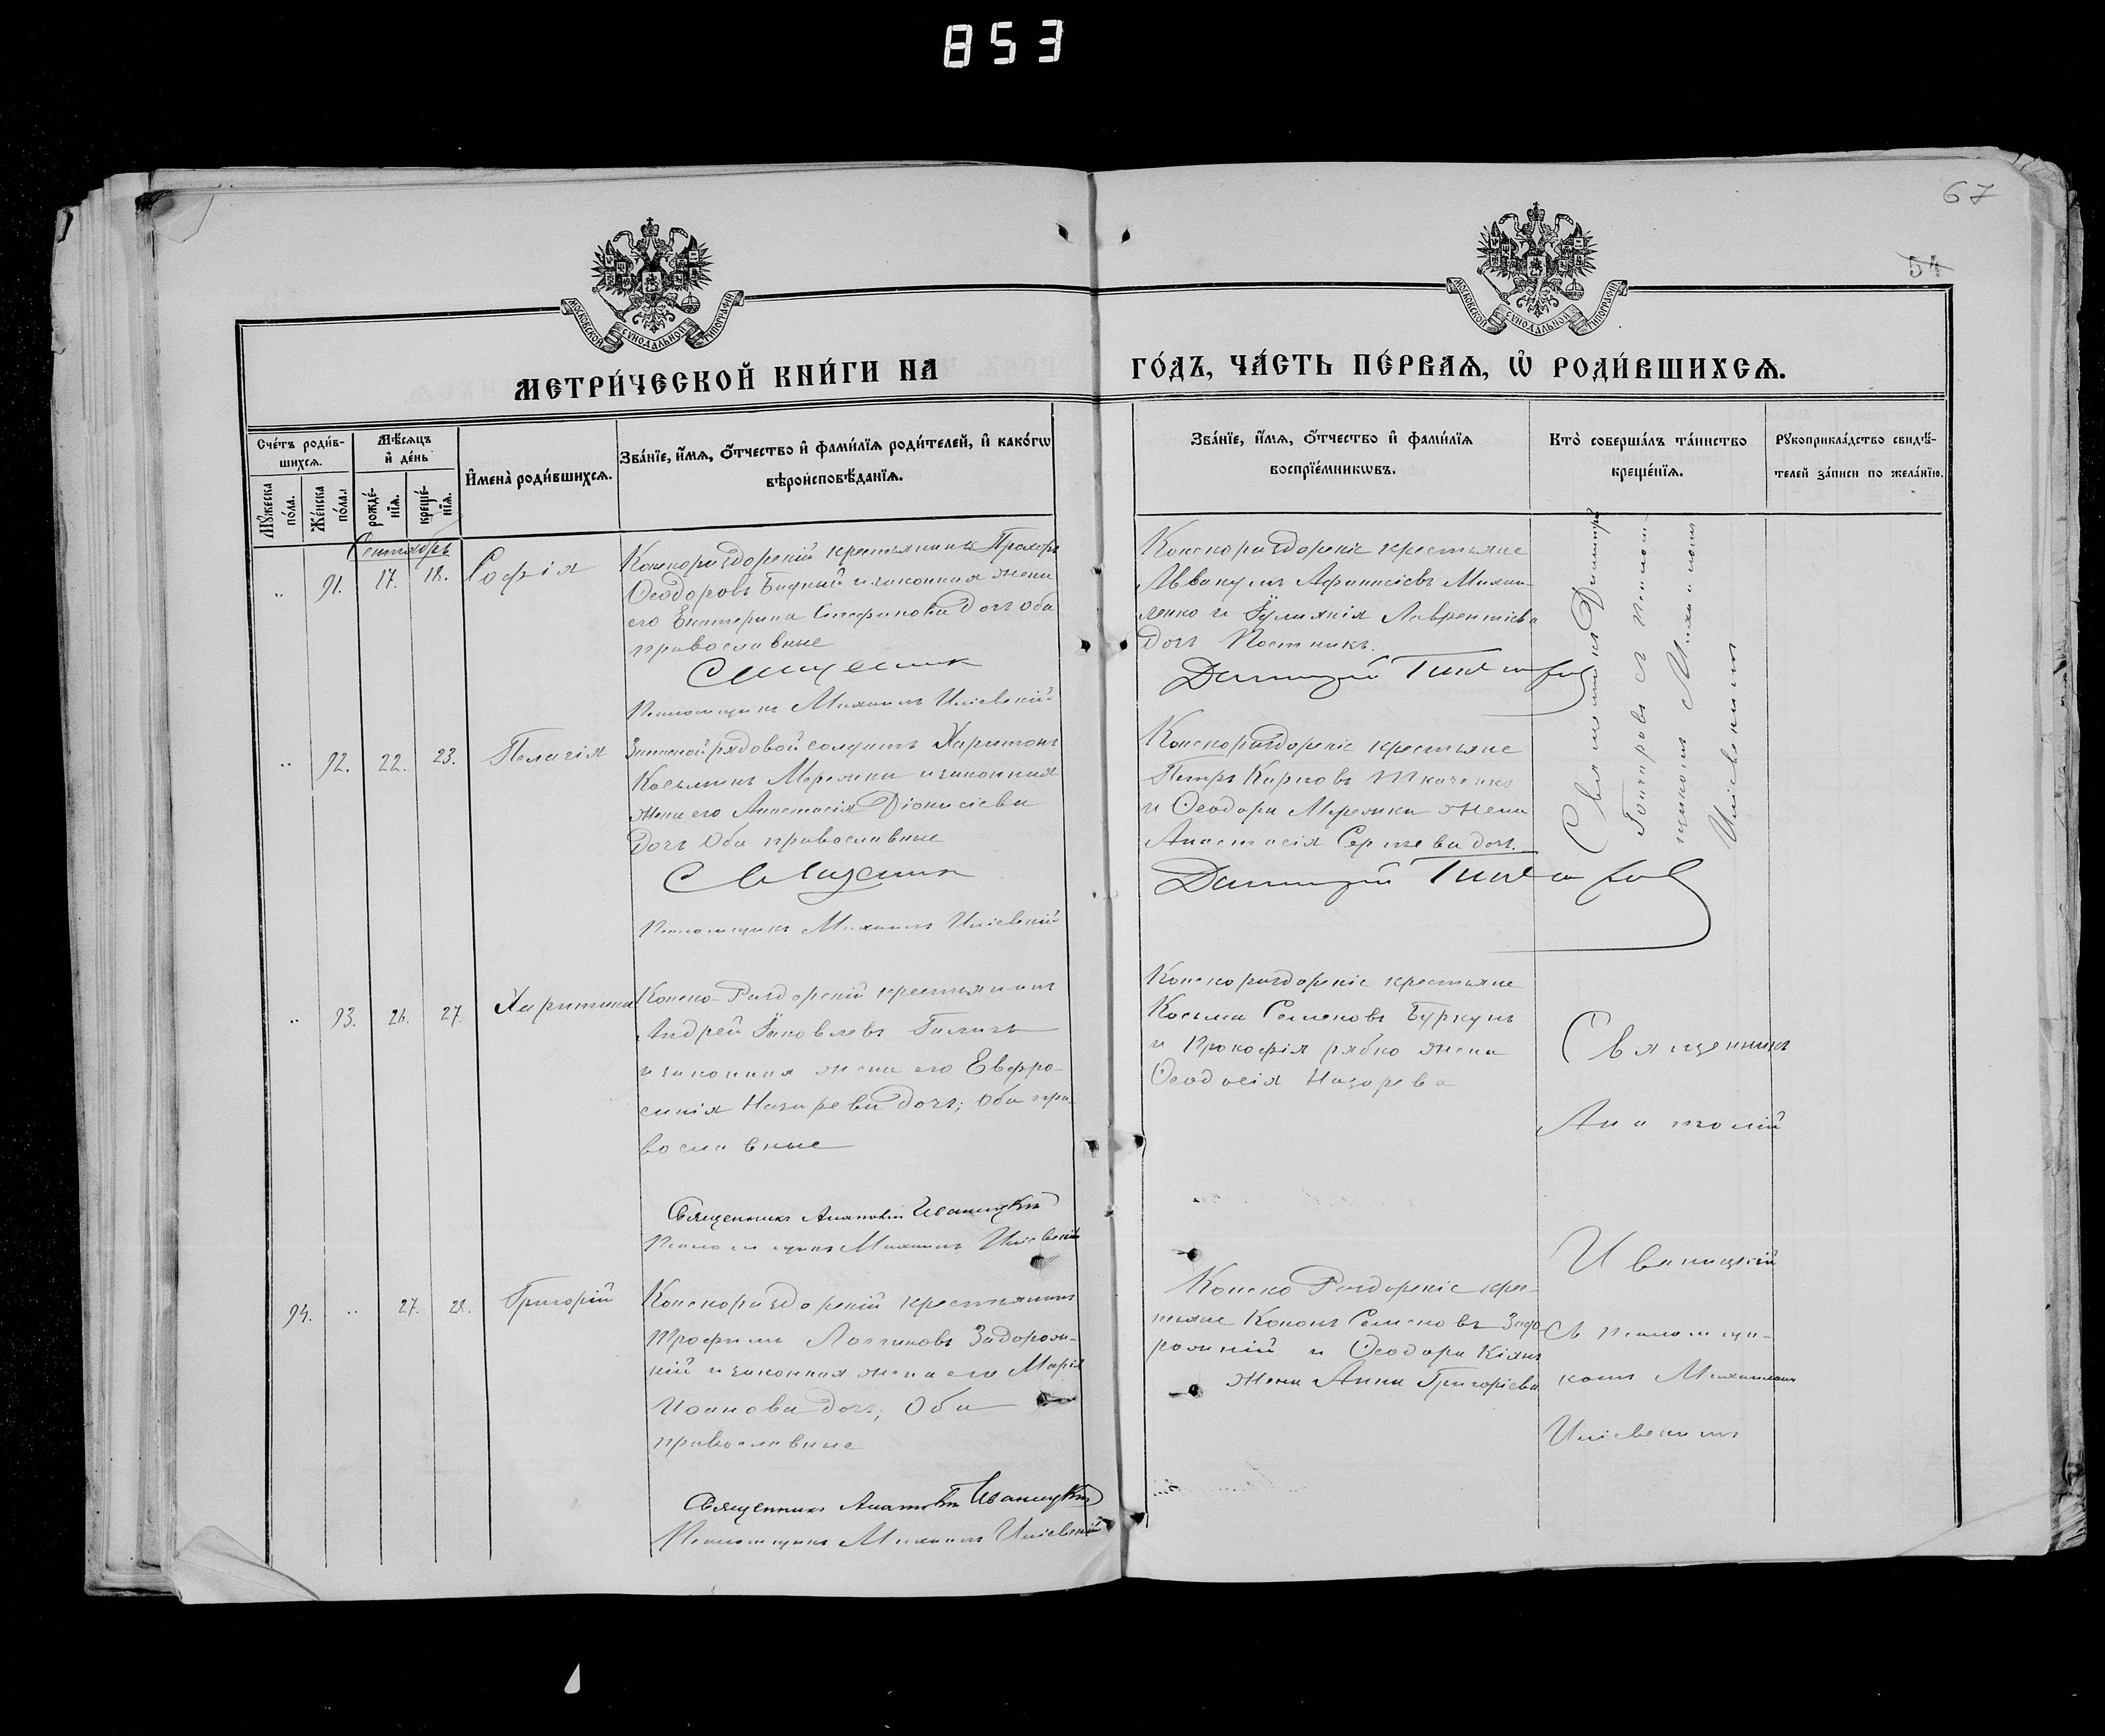 853
67
54
МОСКОВСКОЙ СѴНОДАЛЬНОЙ ТИПОГРАФІИ
МОСКОВСКОЙ СѴНОДАЛЬНОЙ ТИПОГРАФІИ
МЕТРИ́ЧЕСКОЙ КНИ́ГИ НА
ГО́ДЪ, ЧА́СТЬ ПЕ́РВАѦ, Ѽ РОДИ́ВШИХСѦ.
Сче́тъ роди́в-
шихсѧ.
Мѣ́сѧцъ
и҆ де́нь
Мꙋ́жеска
по́ла.
Же́нска
по́ла.
рожде́-
нїѧ.
креще́-
нїѧ.
И҆мена̀ роди́вшихсѧ.
Зва́нїе, и҆́мѧ, ѻ҆́тчество и҆ фами́лїѧ роди́телей, и҆ како́гѡ
вѣроисповѣ́данїѧ.
Зва́нїе, и҆́мѧ, ѻ҆́тчество и҆ фами́лїѧ
воспрїе́мникѡвъ.
Кто̀ соверша́лъ та́инство
креще́нїѧ.
Рꙋкоприкла́дство свидѣ́-
телей за́писи по жела́нїю.
Сентябрь
91. 17. 18. Софія
Конскораздорскій крестьянинъ Прохоръ
Ѳеодоровъ Бидный и законная жена
его Екатерина Стефанова дочь оба
православные
Священник
Псаломщикъ Михаилъ Иліевскій
Конскораздорскіе крестьяне
Аввакумъ Афанасіевъ Михай-
ленко и Іуліанія Лаврентіева
дочь Постникъ.
Димитрій Гончаров
Священникъ Димитрій
Гончаровъ съ псалом-
щикомъ Михаиломъ
Иліевскимъ
92. 22. 23. Пелагія
Запасной рядовой солдатъ Харитонъ
Косьминъ Мережка и законная
жена его Анастасія Діонисіева
дочь Оба православные
Священник
Псаломщикъ Михаилъ Иліевскій
Конскораздорскіе крестьяне
Петръ Карповъ Ткаченко
и Ѳеодора Мережки жена
Анастасія Сергіева дочь.
Димитрій Гончаров
93. 26. 27. Харитина
Конско-Раздорскій крестьянинъ
Андрей Іаковлевъ Галичъ
и законная жена его Евфро-
синія Назарева дочь; Оба пра-
вославные
Священникъ Анатолій Иваницкій
Псаломщикъ Михаилъ Иліевскій
Конскораздорскіе крестьяне
Косьма Семеновъ Буркунъ
и Прокофія рябко жена
Ѳеодосія Назарева
Священникъ
Анатолій
Иваницкій
съ псаломщи-
комъ Михаиломъ
Иліевскимъ
94. 27. 28. Григорій
Конскораздорскій крестьянинъ
Трофимъ Логгиновъ Задорож-
ній и законная жена его Марія
Иоаннова дочь; Оба
православные
Священникъ Анатолій Иваницкій
Псаломщикъ Михаилъ Иліевскій
Конско Раздорскіе крес-
тьяне Кононъ Семеновъ Задо
рожній и Ѳеодора Кіянъ
жена Анна Григоріева